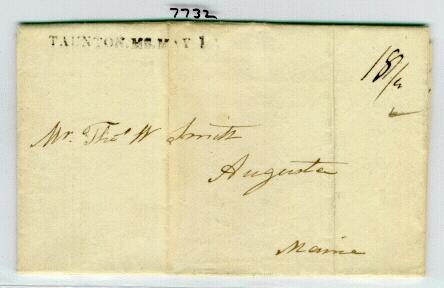 7732
TAUNTON. MS. MAY 1
18 1/2
Mr. Thos W Smith
Augusta
Maine